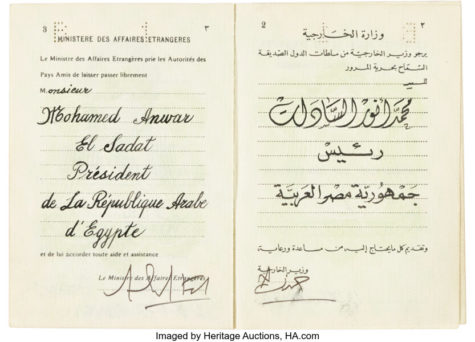 3
٣
MINISTERE DES AFFAIRES ETRANGERES
Le Ministre des Affaires Etrangères prie les Autorités des
Pays Amis de laisser passer librement
Monsieur
Mohamed Anwar
El Sadat
Président
de La République Arabe
d'Egypte
et de lui accorder toute aide et assistance
Le Ministre des Affaires Etrangères
2
٢
وزارة الخارجية
يرجو وزير الخارجية من سلطات الدول الصديقة
السماح بحرية المرور
للسيد
محمد أنور السادات
رئيس
جمهورية مصر العربية
وتقديم كل ما يحتاج إليه من مساعدة ورعاية
وزير الخارجية
Imaged by Heritage Auctions, HA.com